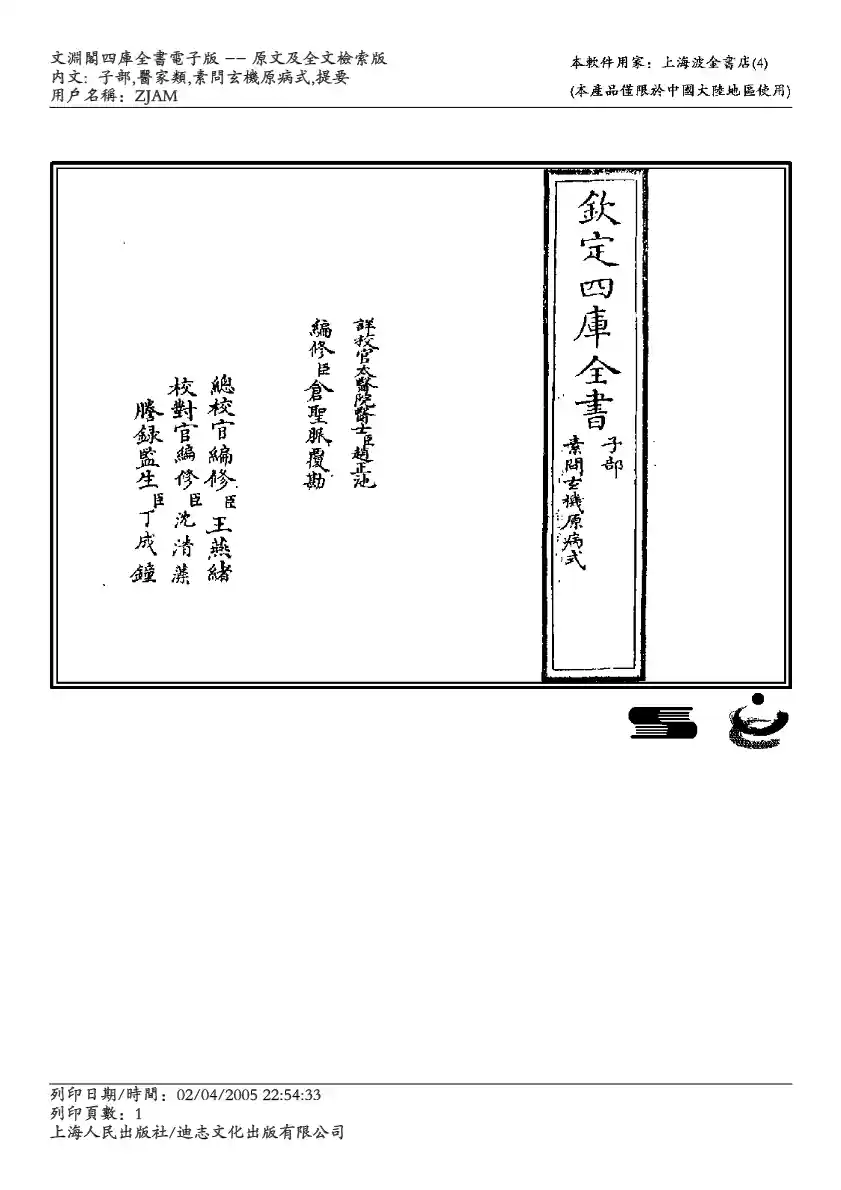 文淵閣四庫全書電子版 −− 原文及全文檢索版
内文: 子部,醫家類,素問玄機原病式,提要
用戶名稱：ZJAM
本軟件用家：上海波金書店(4)
(本產品僅限於中國大陸地區使用)
欽定四庫全書
子部
素問玄機原病式
詳校官太醫院醫士臣趙正池
編修臣倉聖脈覆勘
總校官編修臣王燕緒
校對官編修臣沈清藻
謄録監生臣丁成鐘
列印日期/時間：02/04/2005 22:54:33
列印頁數：1
上海人民出版社/迪志文化出版有限公司